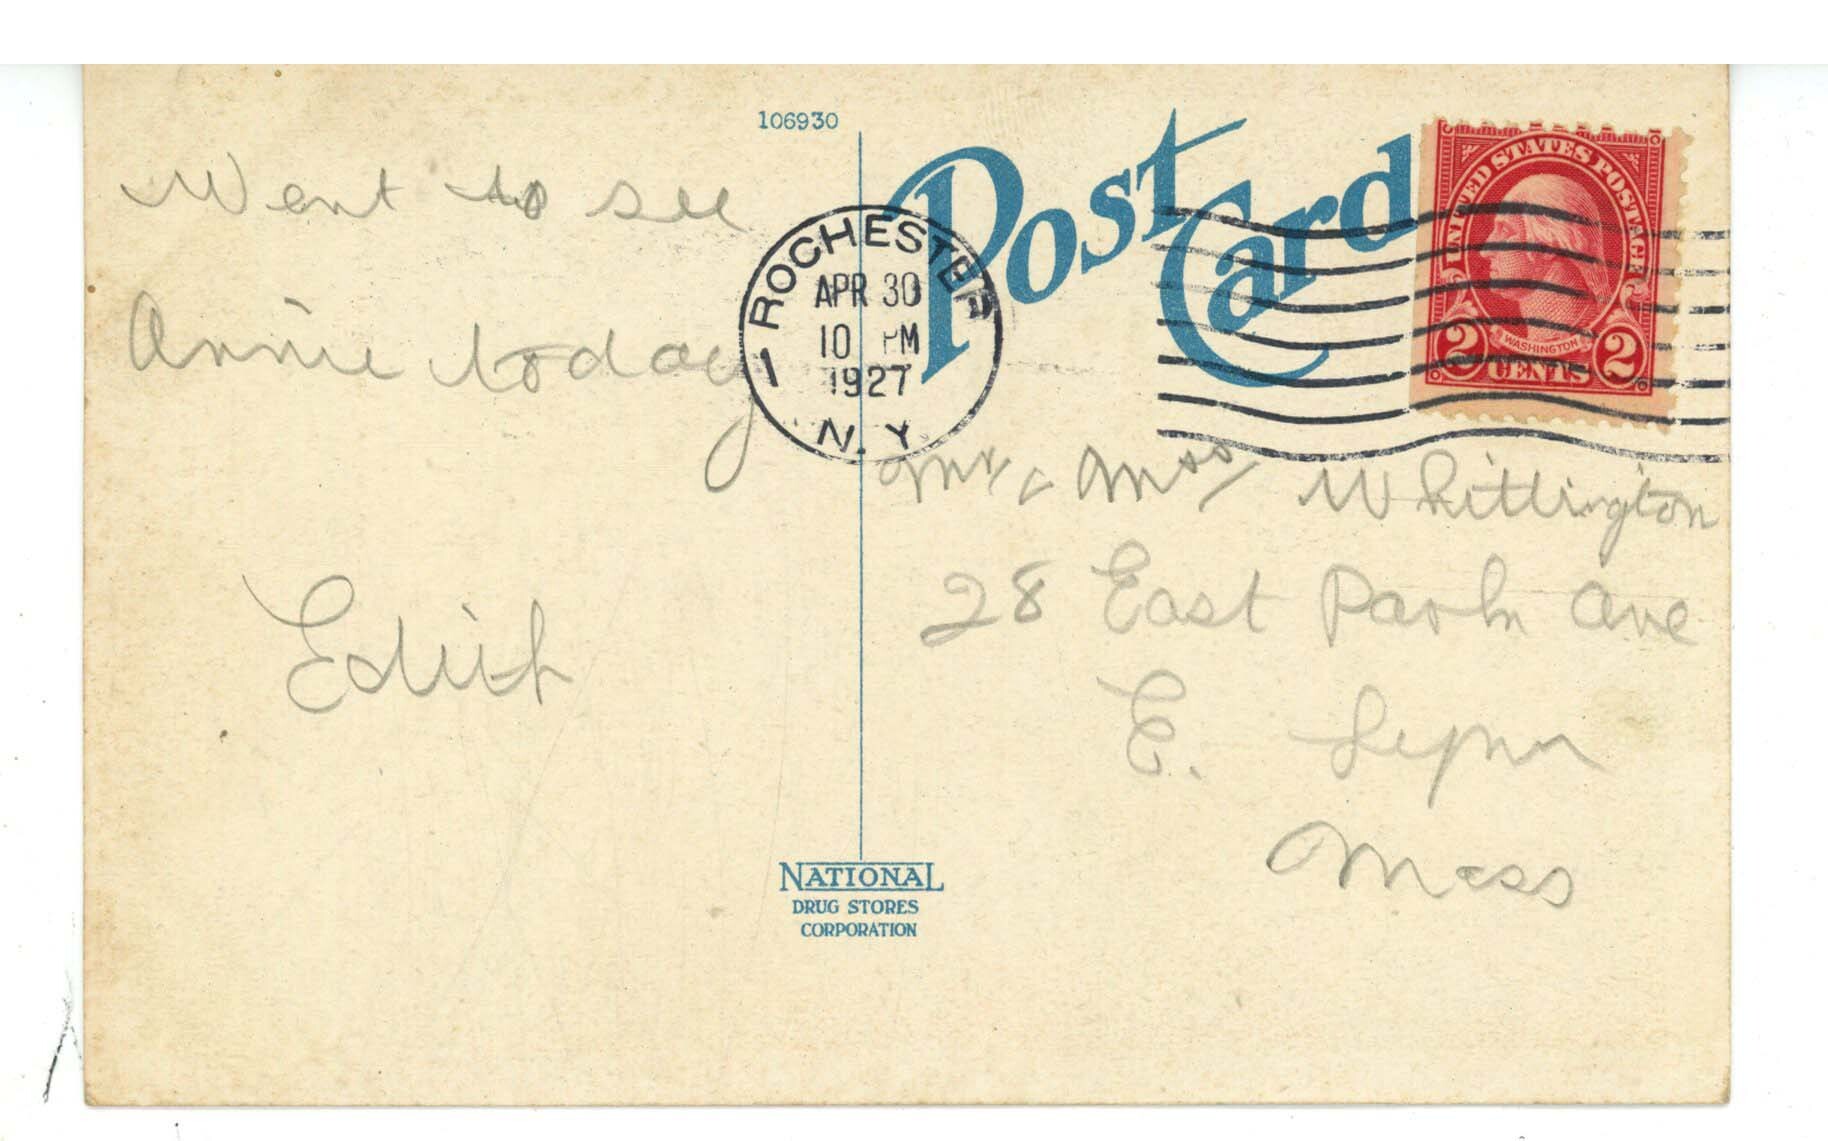 106930
Post Card
Went to see
Annie today
Edith
ROCHESTER
APR 30
10 PM
1927
N.Y.
1
UNITED STATES POSTAGE
WASHINGTON
2 CENTS 2
Mr & Mrs Whittington
28 East Park Ave
E. Lynn
Mass
NATIONAL
DRUG STORES
CORPORATION